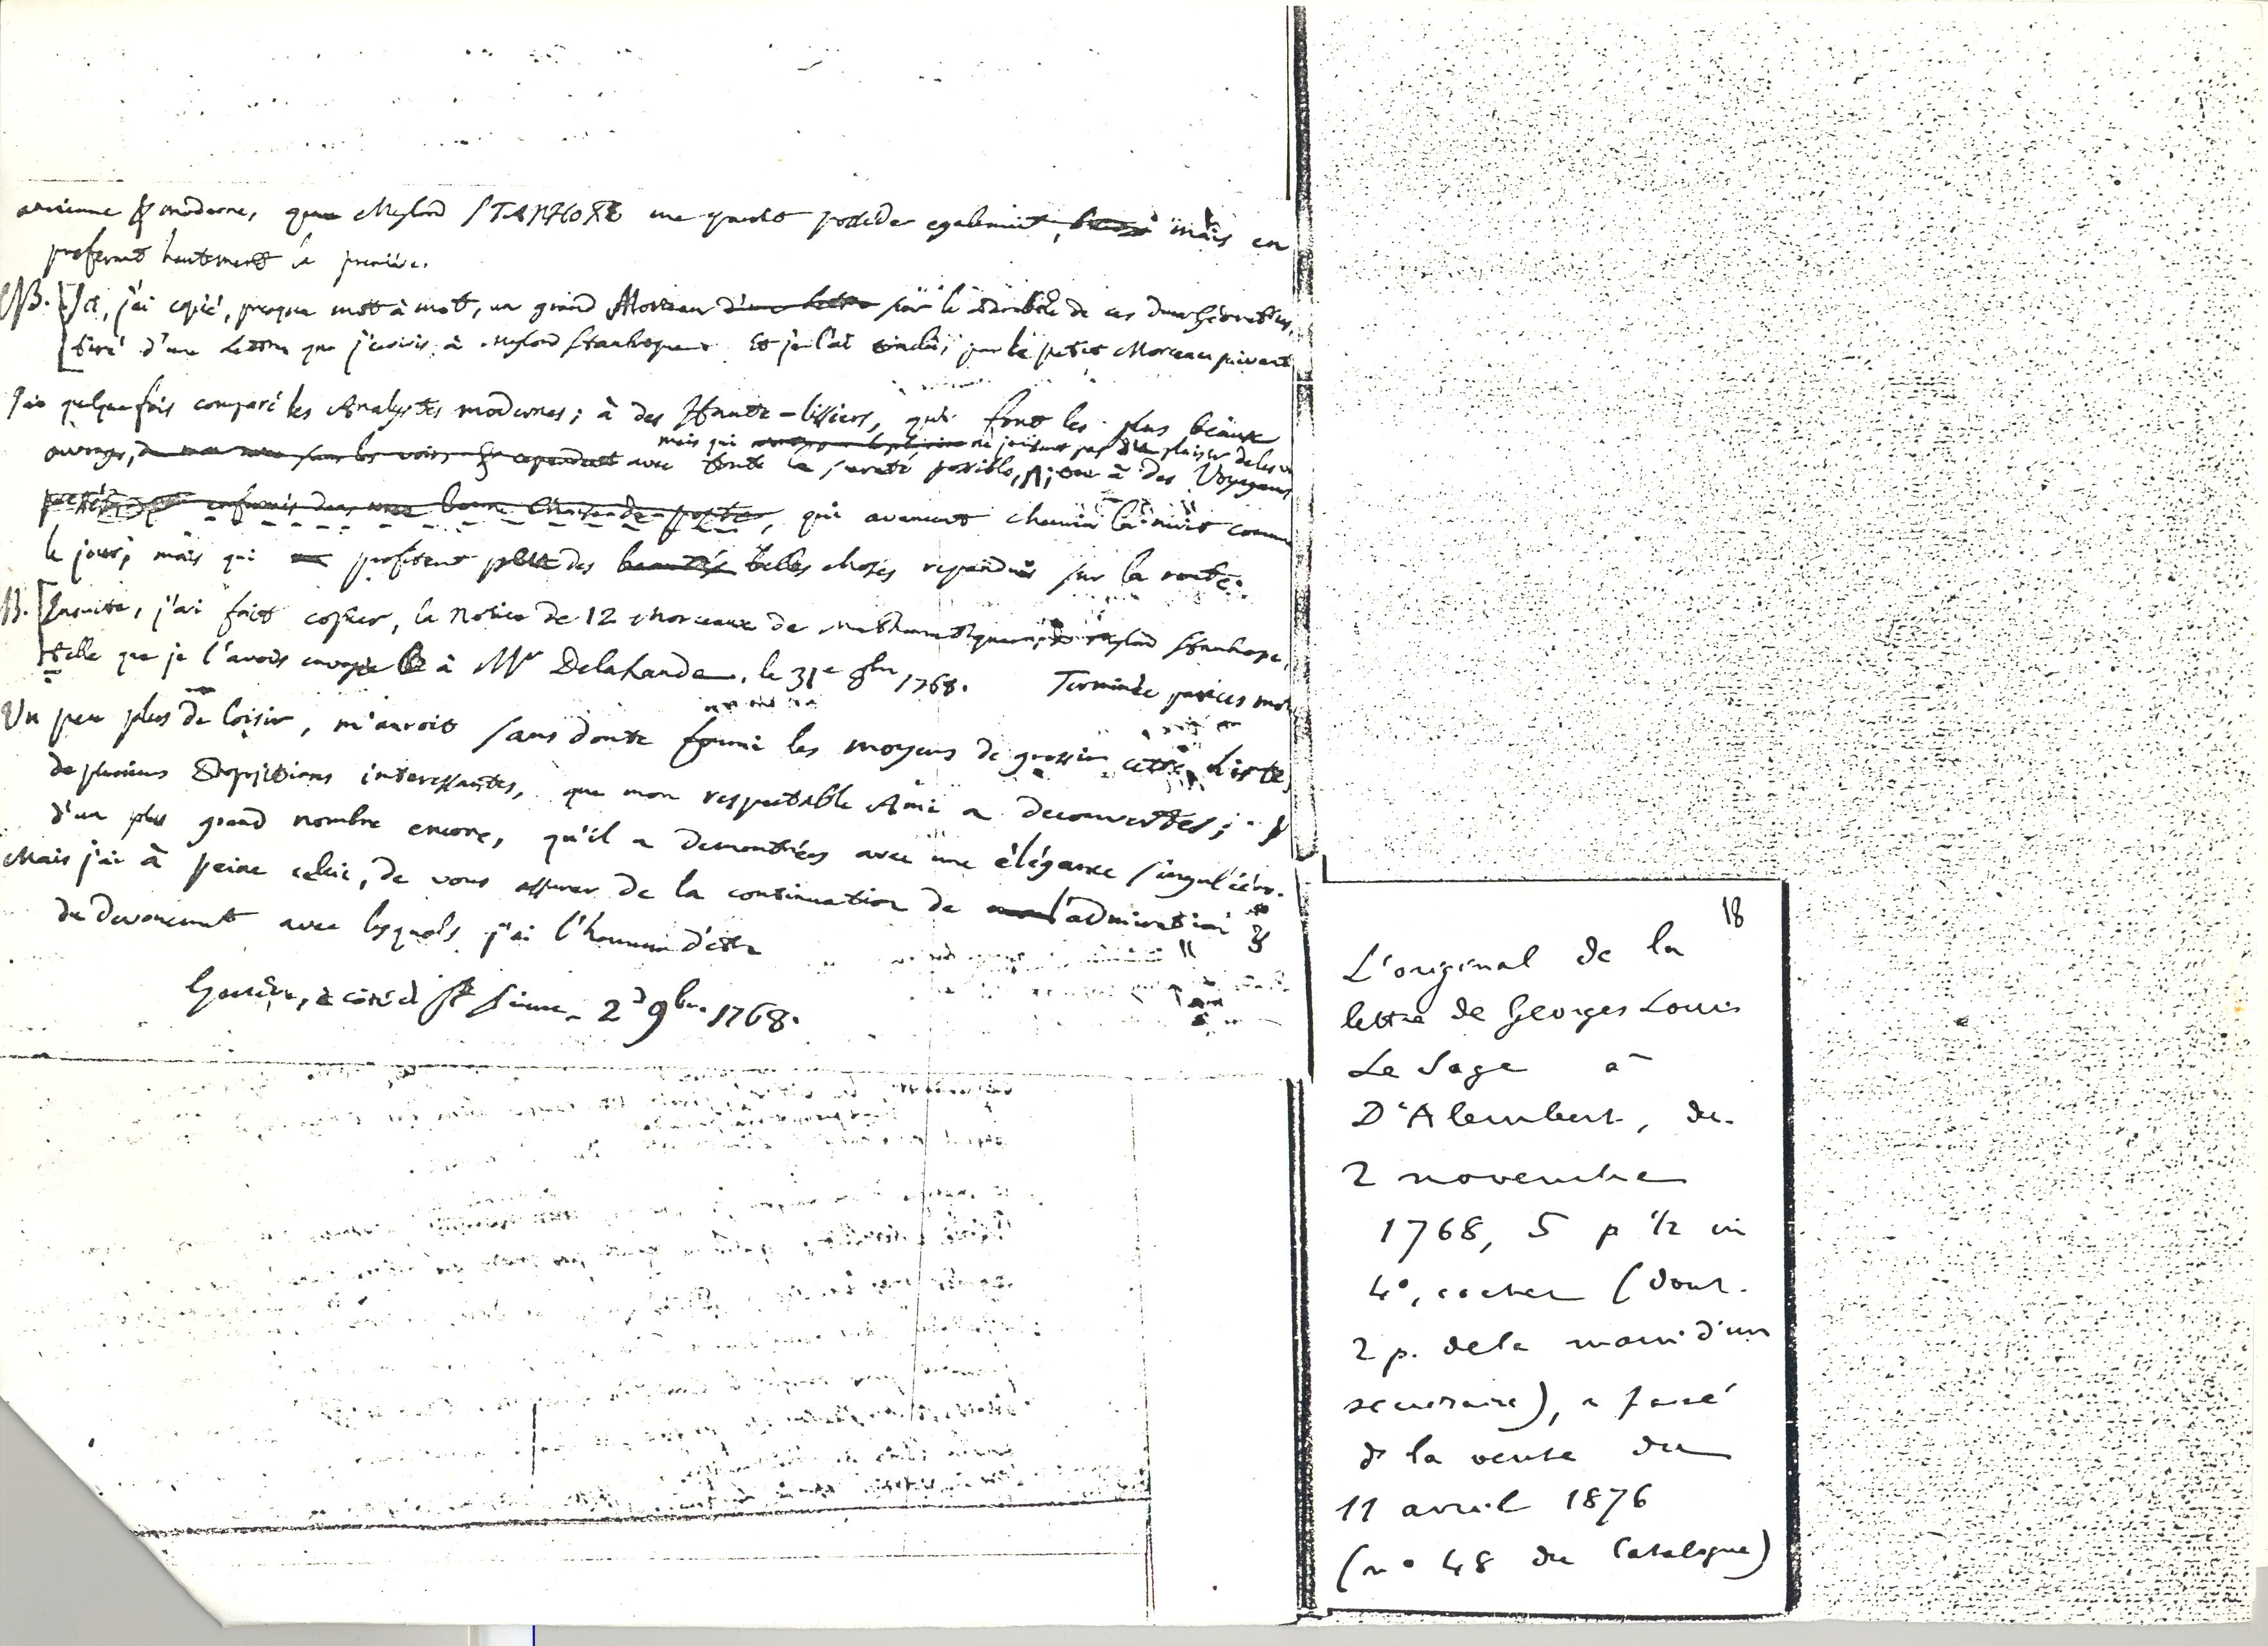 ancienne & moderne, que Mylord STANHOPE me paroit posseder egalement, mais en
preferant hautement la premiere.
NB. [Ici, j'ai copié, presque mot à mot, un grand Morceau d'une Lettre sur le de ces deux Géometries,
tiré d'une Lettre que j'écrivis à Mylord Stanhope. Et je l'ai conclu, par le petit Morceau suivant
J'ai quelquefois comparé les Analystes modernes; à des Haute-lissiers, qui font les plus beaux
mais qui ne jouissent pas du plaisir de les voir
ouvrages, avec toute la sureté possible, ou à des Voyageurs
enfermés dans une bonne Chaise de poste, qui avancent chemin la nuit comme
le jour; mais qui profitent peu des beautés belles choses repandues sur la route.
B. [Ensuite, j'ai fait copier, la Notice de 12 Morceaux de Mathematiques, de Mylord Stanhope,
telle que je l'avois envoyée à Mr Delalande, le 31e 8bre 1768. Terminée par ces mots
Un peu plus de loisir, m'auroit sans doute fourni les moyens de grossir cette Liste,
de plusieurs Propositions interessantes, que mon respectable Ami a decouvertes; &
d'un plus grand nombre encore, qu'il a demontrées avec une élégance singulière.
Mais j'ai à peine celui, de vous assurer de la continuation de l'admiration &
du devouement avec lesquels j'ai l'honneur d'être
Genève, 2d 9bre 1768.
18
L'original de la
lettre de Georges Louis
Le Sage à
D'Alembert, du
2 novembre
1768, 5 p 1/2 in
4°, cachet (dont
2 p. de la main d'un
secretaire), a passé
ds la vente du
11 avril 1876
(n° 48 du Catalogue)